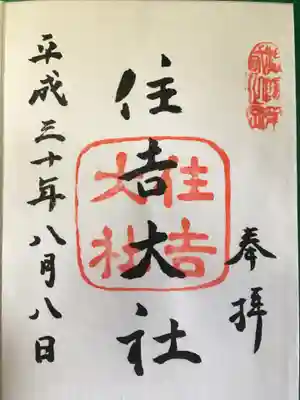 奉拝
住吉大社
住吉大社
平成三十年八月八日